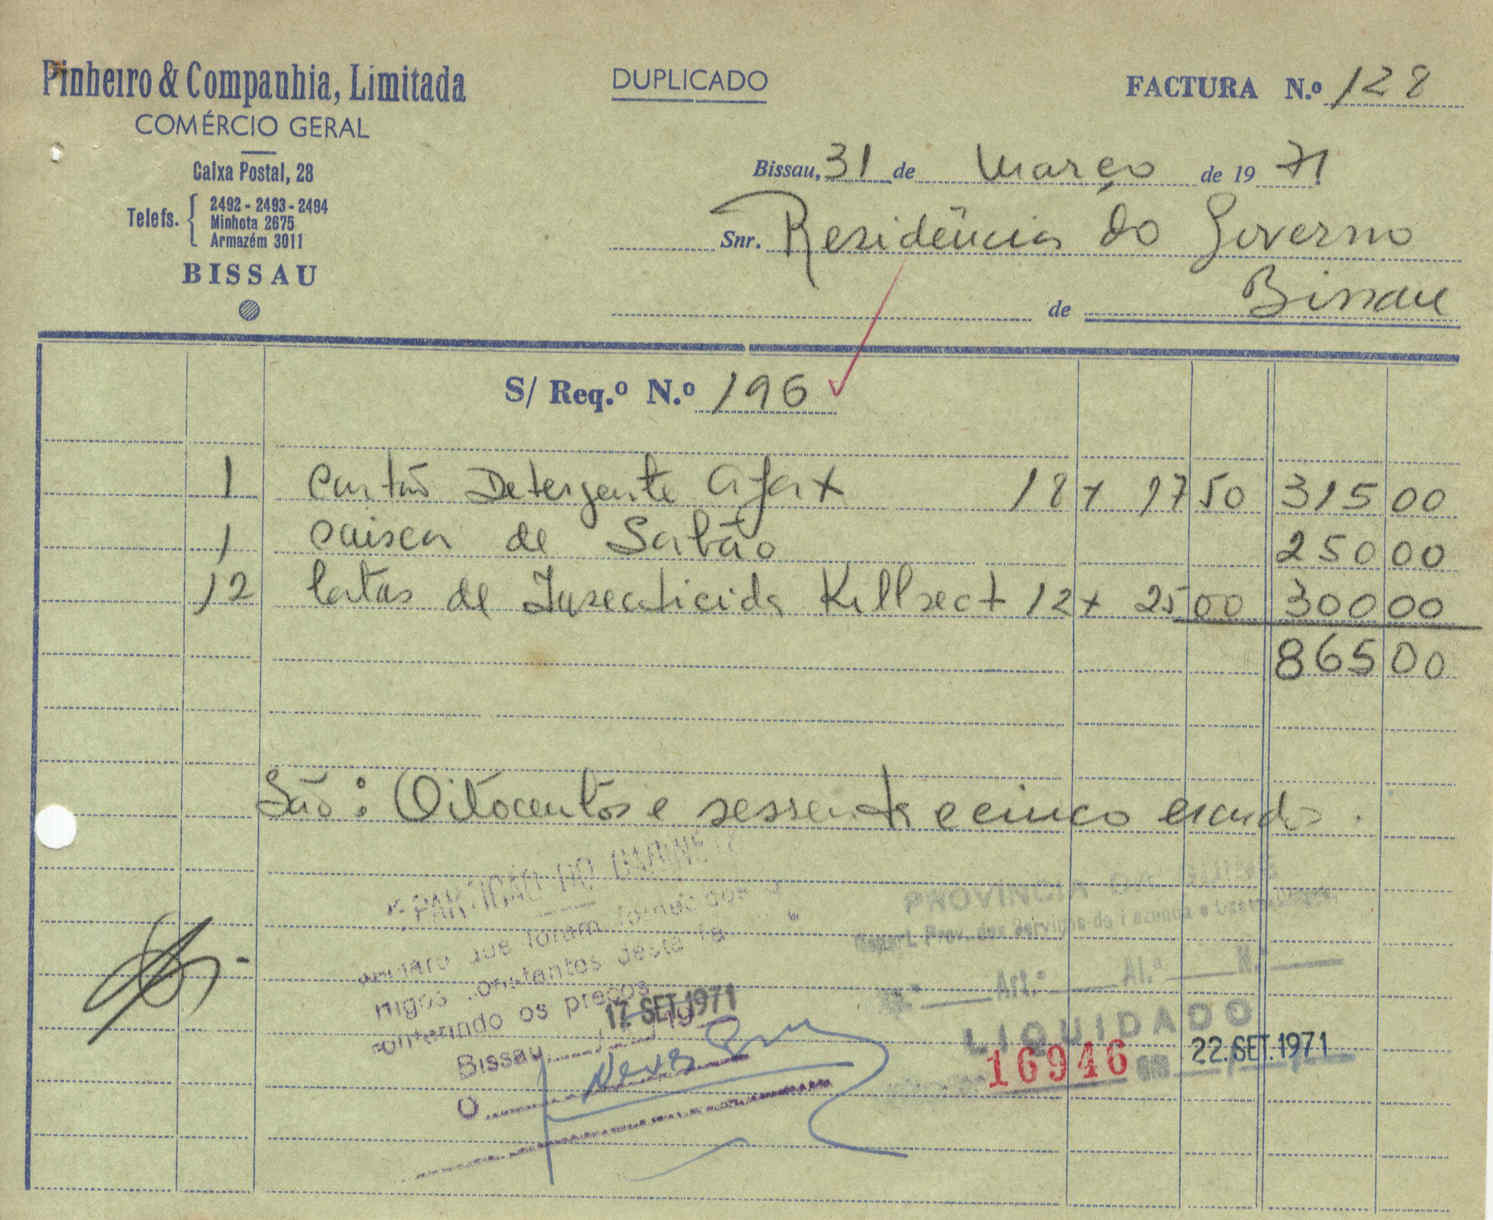 Pinheiro & Companhia, Limitada
COMÉRCIO GERAL
Caixa Postal, 28
Telefs. 2492 - 2493 - 2494
Minhota 2675
Armazém 3011
BISSAU
DUPLICADO
FACTURA N.º 128
Bissau, 31 de Março de 1971
Snr. Residência do Governo
de Bissau
S/ Req.º N.º 196
1 Cartão Detergente Ajax 18 x 17 50 315 00
1 caixa de Sabão 250 00
12 latas de Insecticida Killsect 12 x 25 00 300 00
865 00
São: Oitocentos e sessenta e cinco escudos.
REPARTIÇÃO DO GABINETE
que foram fornecidos
constantes desta
conferindo os preços
17. SET. 1971
Bissau, / / 19
O
PROVÍNCIA DA GUINÉ
Repart. Prov. dos Serviços de Fazenda e Contabilidade
Art.º Al.ª N.º
LIQUIDADO
16946 em 22. SET. 1971